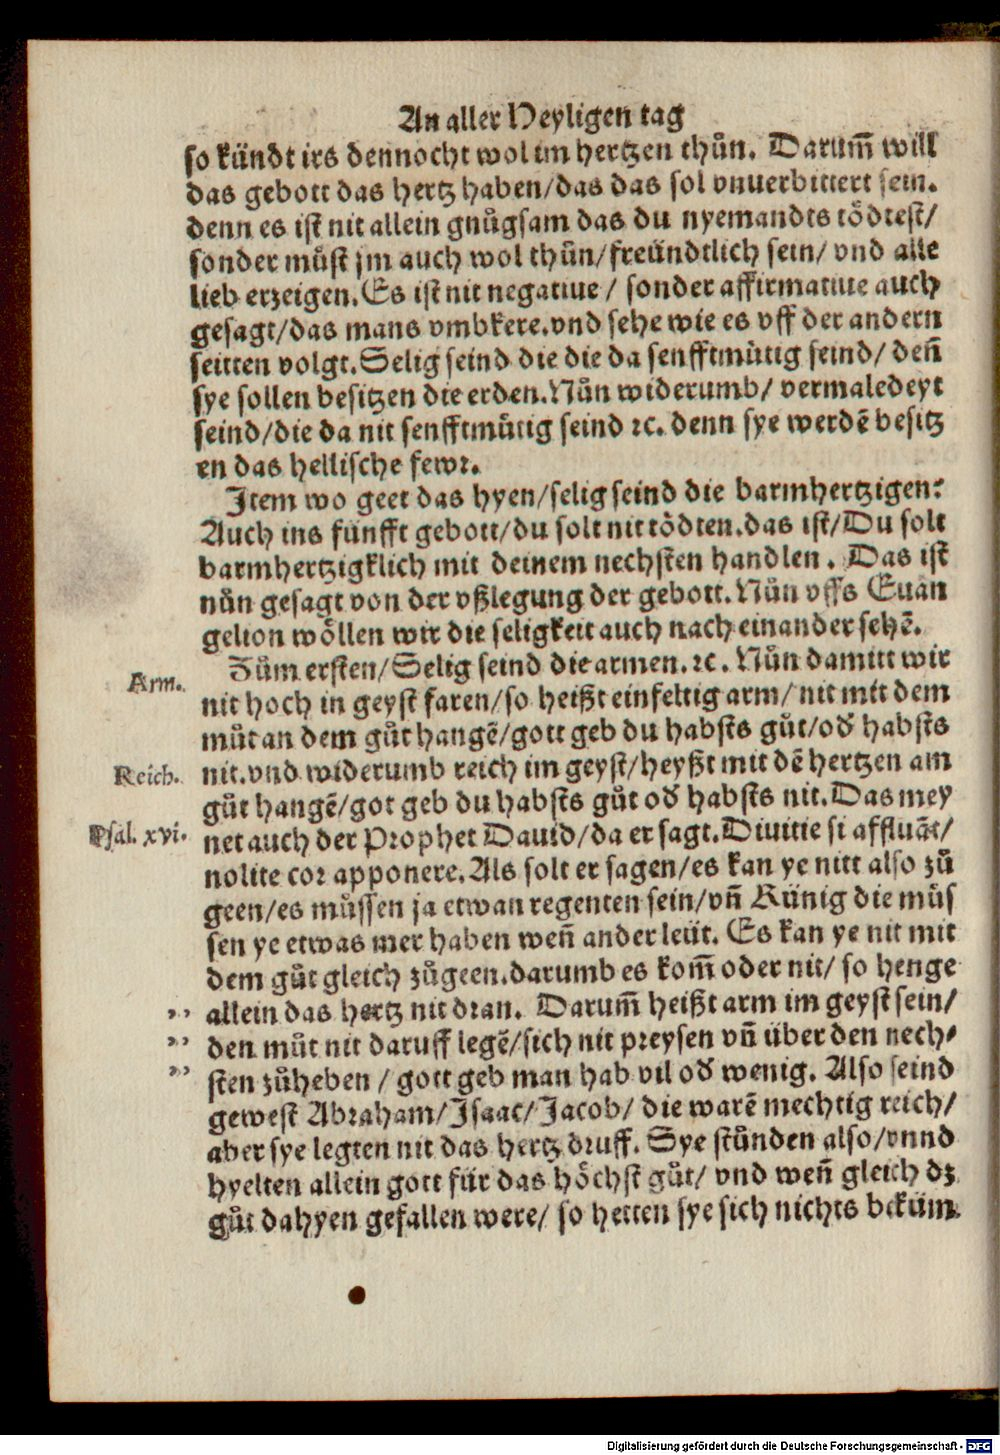 An aller Heyligen tag
so kündt irs dennocht wol im hertzen thůn. Darum̃ will
das gebott das hertz haben/das das sol vnuerbittert sein.
denn es ist nit allein gnůgsam das du nyemandts tödtest/
sonder můst jm auch wol thůn/freündtlich sein/ vnd alle
lieb erzeigen. Es ist nit negatiue / sonder affirmatiue auch
gesagt/das mans vmbkere.vnd sehe wie es vff der andern
seitten volgt. Selig seind die die da senfftmütig seind/ deñ
sye sollen besitzen die erden. Nůn widerumb/ vermaledeyt
seind/die da nit senfftmütig seind ꝛc. denn sye werdẽ besitz
en das hellische fewr.
Item wo geet das hyen/selig seind die barmhertzigen?
Auch ins fünfft gebott/du solt nit tödten.das ist/Du solt
barmhertzigklich mit deinem nechsten handlen. Das ist
nůn gesagt von der vßlegung der gebott. Nůn vffs Euan
gelion wöllen wir die seligkeit auch nach einander sehẽ.
Arm.
Zům ersten/Selig seind die armen. ꝛc. Nůn damitt wir
nit hoch in geyst faren/so heißt einfeltig arm/ nit mit dem
můt an dem gůt hangẽ/gott geb du habsts gůt/od̃ habsts
Reich.
nit.vnd widerumb reich im geyst/heyßt mit dẽ hertzen am
gůt hangẽ/got geb du habsts gůt od̃ habsts nit. Das mey
Psal. xvi.
net auch der Prophet Dauid/da er sagt. Diuitie si affluãt/
nolite cor apponere. Als solt er sagen/es kan ye nitt also zů
geen/es müssen ja etwan regenten sein/vñ Künig die müs
sen ye etwas mer haben weñ ander leüt. Es kan ye nit mit
dem gůt gleich zůgeen.darumb es kom̃ oder nit/ so henge
allein das hertz nit dran. Darum̃ heißt arm im geyst sein/
den můt nit daruff legẽ/sich nit preysen vñ über den nech-
sten zůheben / gott geb man hab vil od̃ wenig. Also seind
gewest Abraham/Isaac/Jacob/ die warẽ mechtig reich/
aber sye legten nit das hertz druff. Sye stůnden also/vnnd
hyelten allein gott für das höchst gůt/ vnd weñ gleich dz
gůt dahyen gefallen were/ so hetten sye sich nichts bekům
Digitalisierung gefördert durch die Deutsche Forschungsgemeinschaft - DFG